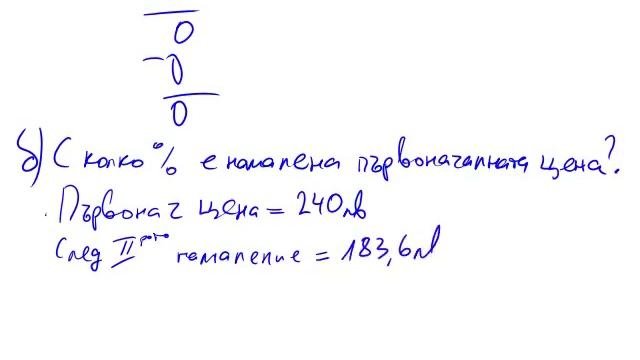 0
-0
0
б) С колко % е намалена първоначалната цена?
Първонач цена = 240лв
След II рото намаление = 183,6лв